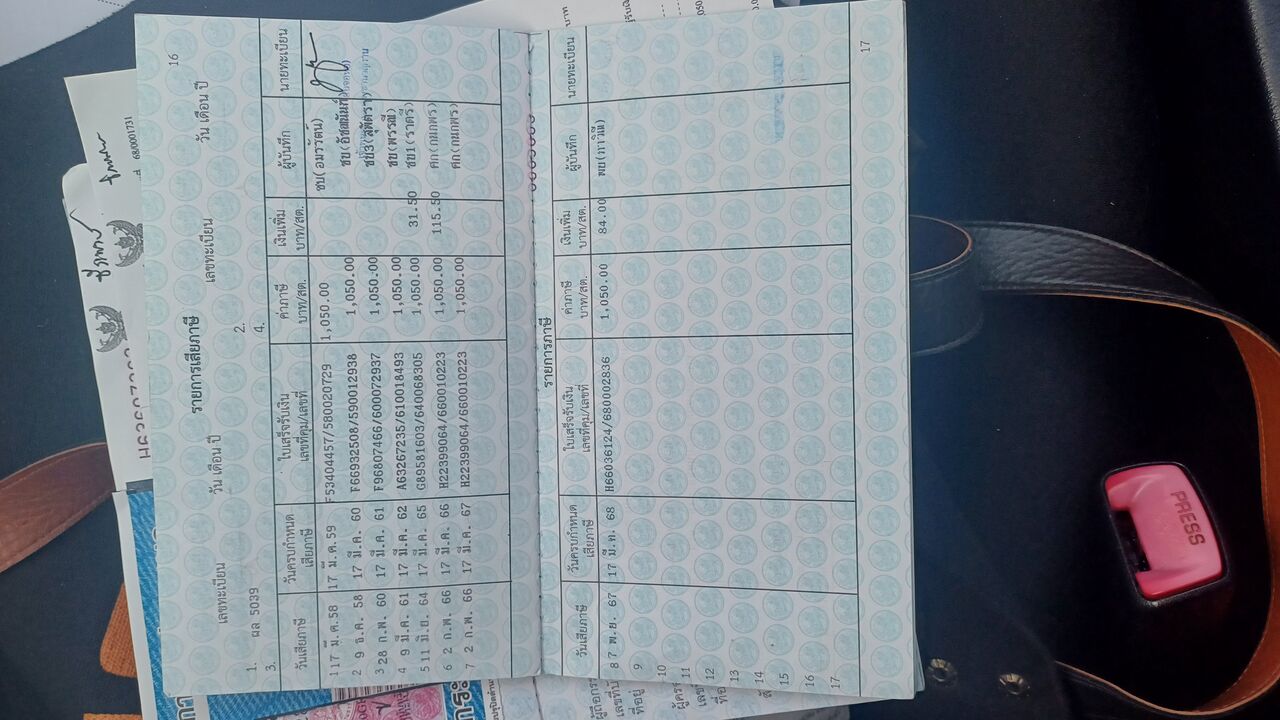 16
เลขทะเบียน วัน เดือน ปี เลขทะเบียน วัน เดือน ปี
รายการเสียภาษี
1. ผล 5039 2.
3. 4.
วันเสียภาษี วันครบกำหนดเสียภาษี ใบเสร็จรับเงิน เลขที่คุม/เลขที่ ค่าภาษี บาท/สต. เงินเพิ่ม บาท/สต. ผู้บันทึก นายทะเบียน
1 17 มี.ค.58 17 มี.ค.59 F53404457/580020729 1,050.00 ชบ(อมรรัตน์)
2 9 ธ.ค. 58 17 มี.ค. 60 F66932508/590012938 1,050.00
3 28 ก.พ. 60 17 มี.ค. 61 F96807466/600072937 1,050.00
4 9 มี.ค. 61 17 มี.ค. 62 A63267235/610018493 1,050.00
5 11 มิ.ย. 64 17 มี.ค. 65 G89581603/640068305 1,050.00 31.50 ชบ1(ราตรี)
6 2 ก.พ. 66 17 มี.ค. 66 H22399064/660010223 1,050.00 115.50 ศก(กนกพร)
7 2 ก.พ. 66 17 มี.ค. 67 H22399064/660010223 1,050.00 ศก(กนกพร)
รายการภาษี
วันเสียภาษี วันครบกำหนดเสียภาษี ใบเสร็จรับเงิน เลขที่คุม/เลขที่ ค่าภาษี บาท/สต. เงินเพิ่ม บาท/สต. ผู้บันทึก นายทะเบียน
8 7 พ.ย. 67 17 มี.ค. 68 H66036124/680002836 1,050.00 84.00
9
10
11
12
13
14
15
16
17
17
68/0001731
PRESS